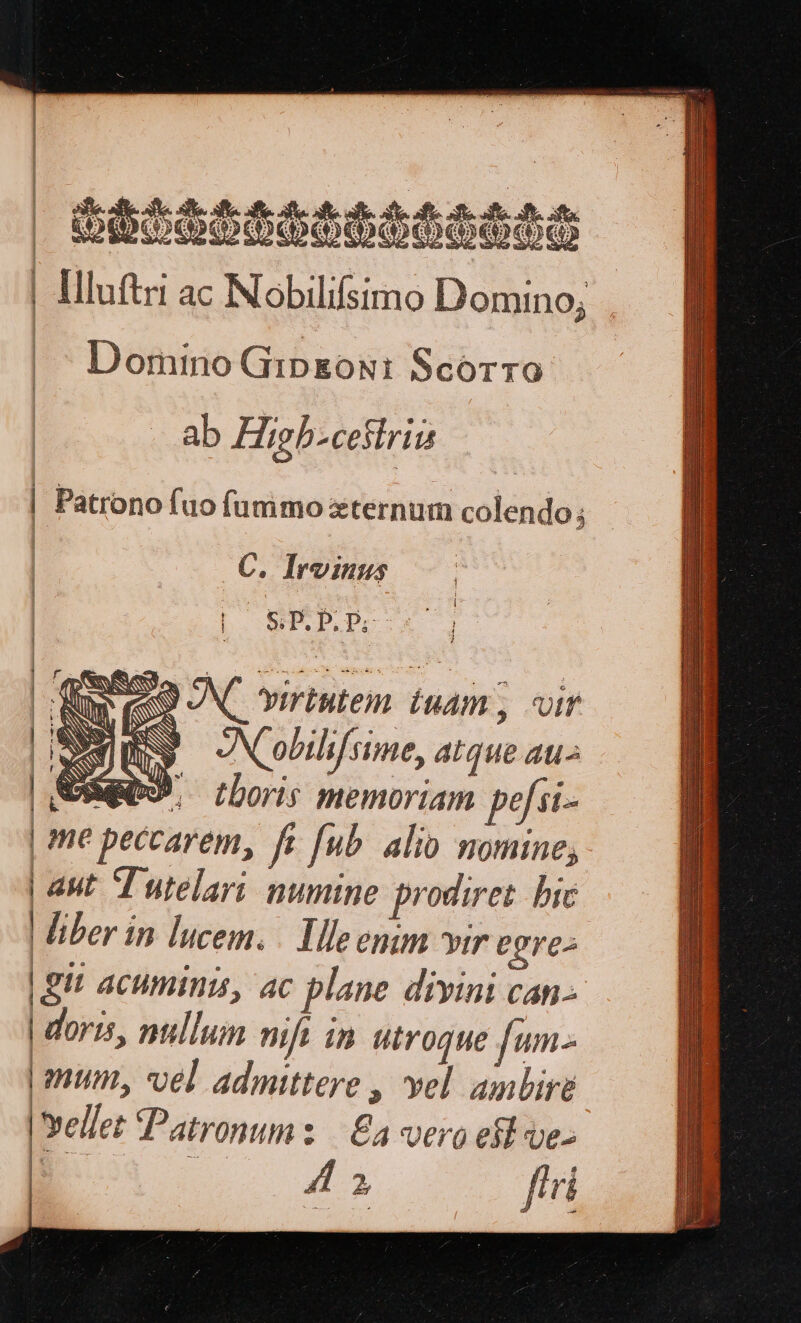 Illuſtri ac Nobiliſsimo Domino,
Domino Gideoni Scotto
ab High-cestriis
Patrono ſuo ſummo æternum colendo;
C. Irvinus
S. P. D. P.
IN virtutem tuam, vir
Nobiliſsime, atque au-
thoris memoriam peſsi-
me peccarem, ſi ſub alio nomine,
aut Tutelari numine prodiret hic
liber in lucem. Ille enim vir egre-
gii acuminis, ac plane divini can-
doris, nullum niſi in utroque ſum-
mum, vel admittere, vel ambire
vellet Patronum: Ea vero est ve-
A 2 ſtri